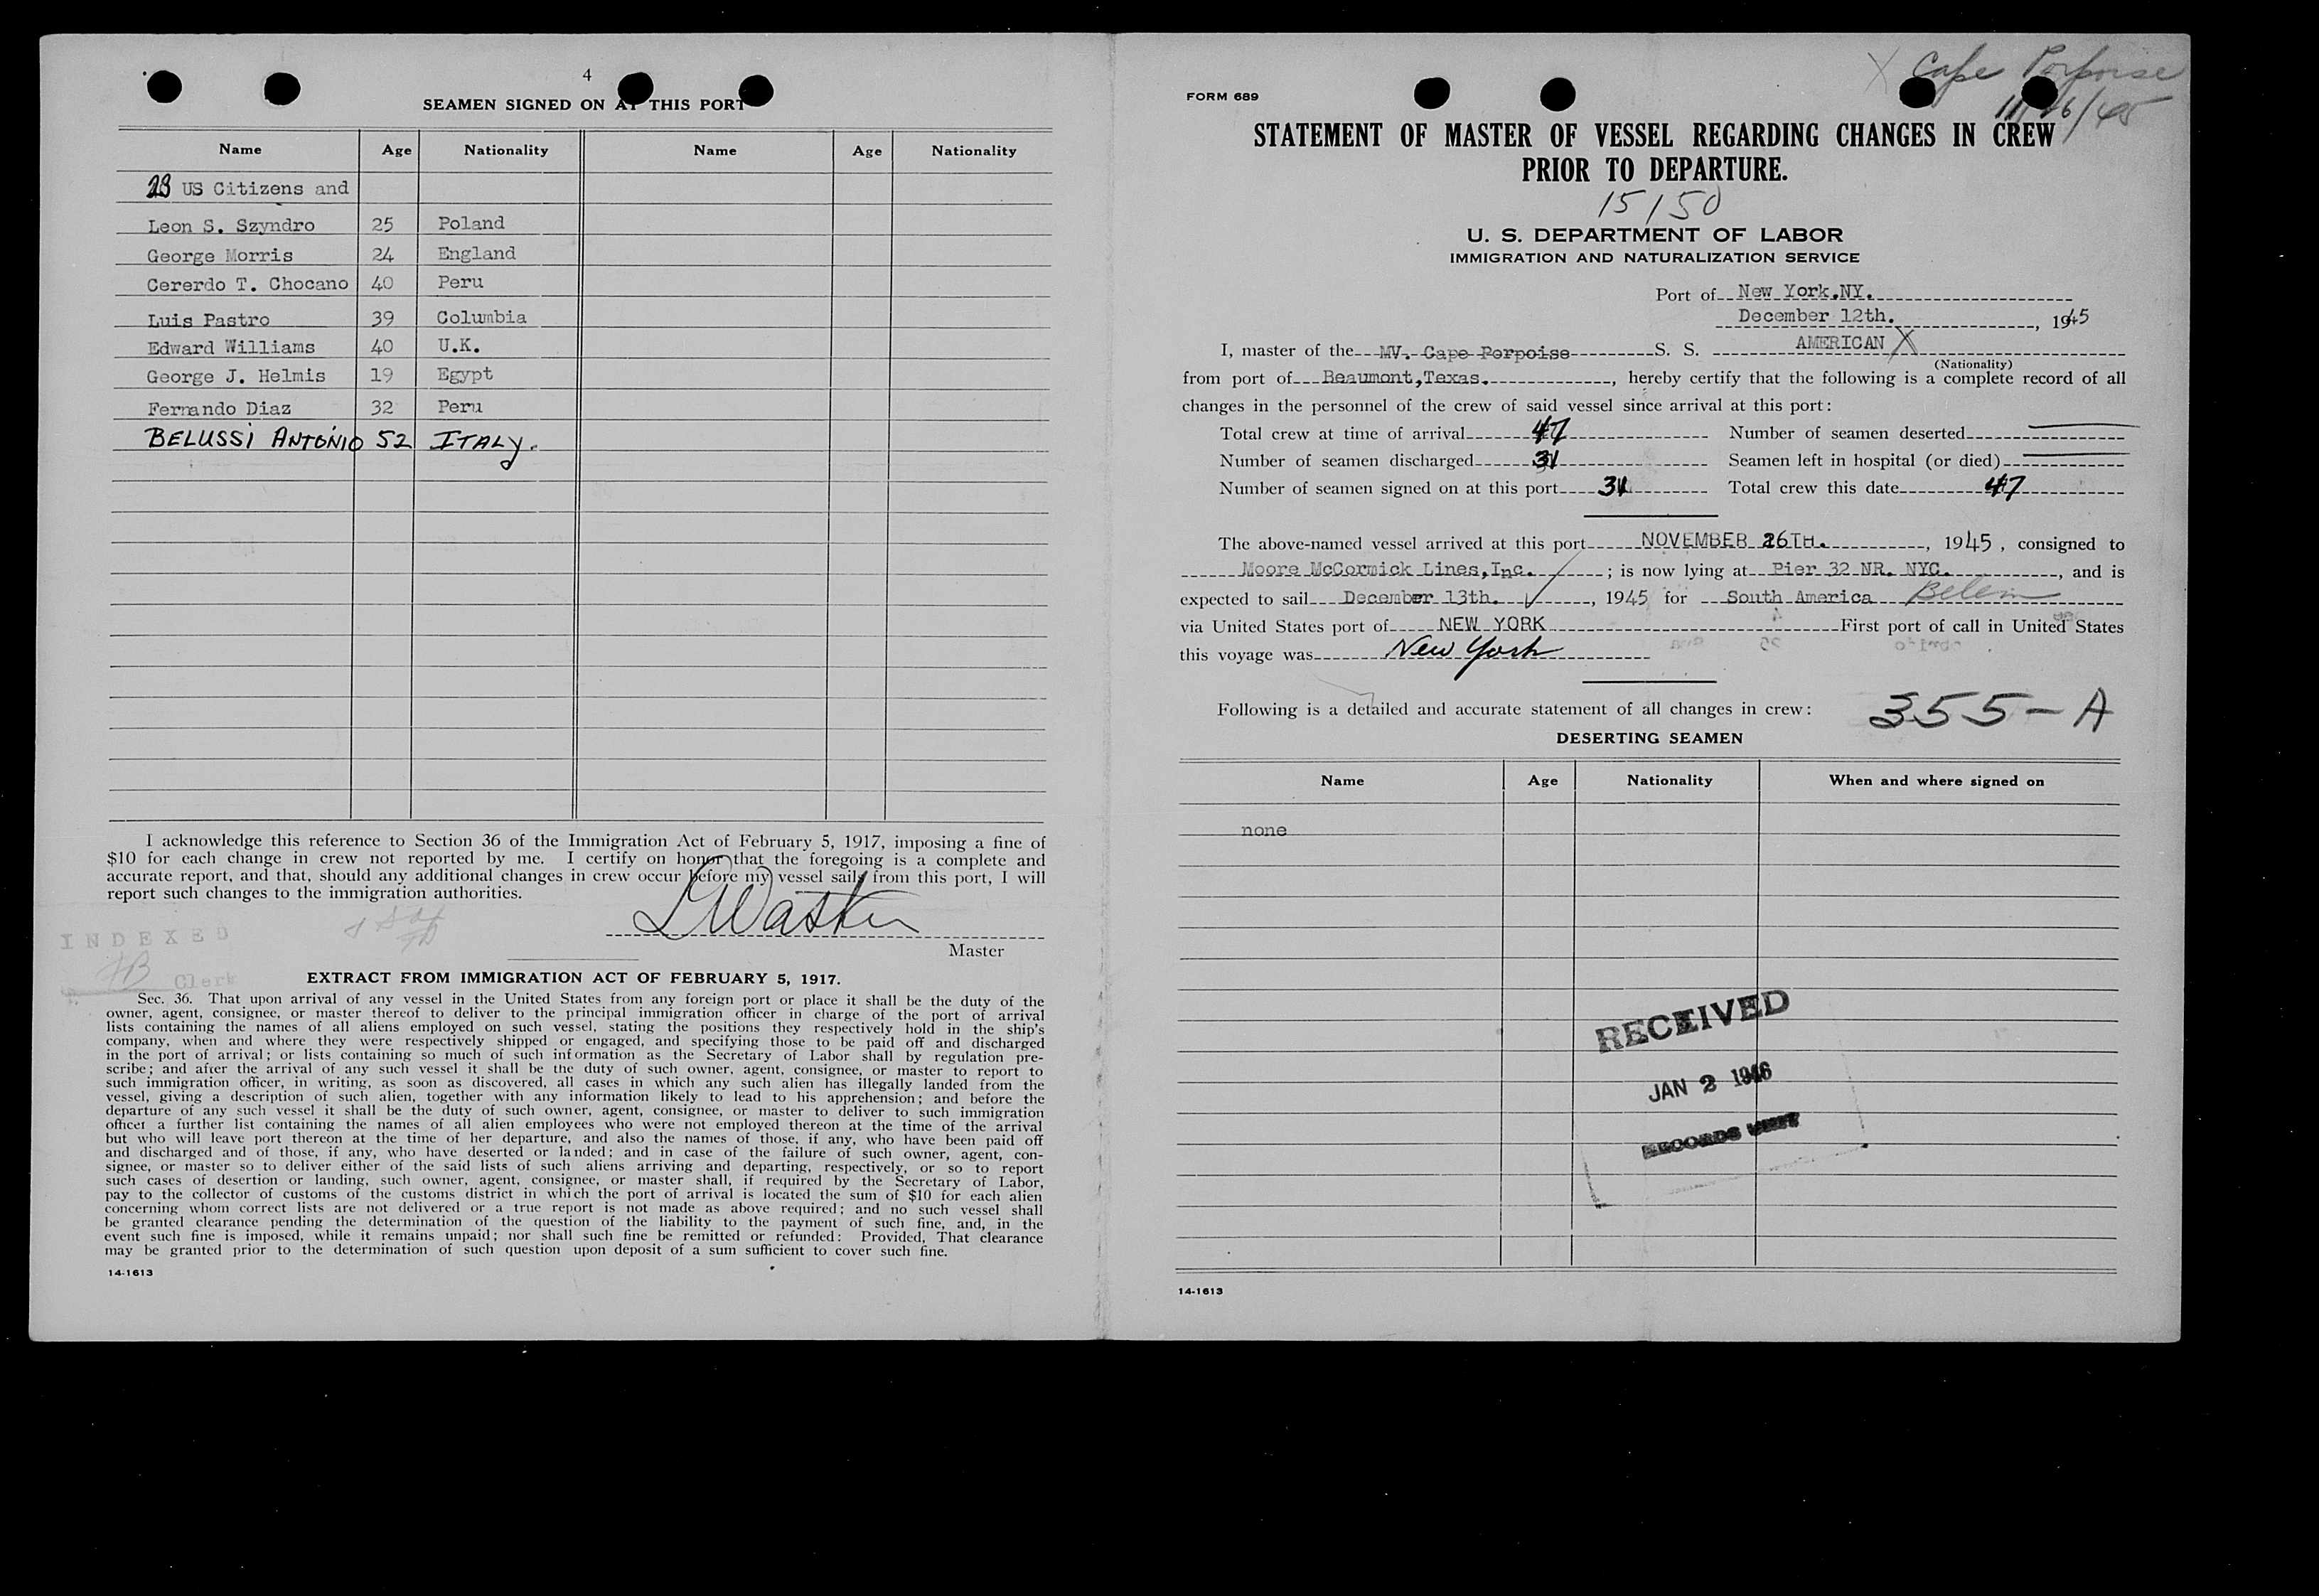 4
SEAMEN SIGNED ON AT THIS PORT
Name Age Nationality Name Age Nationality
23 US Citizens and
Leon S. Szyndro 25 Poland
George Morris 24 England
Cererdo T. Chocano 40 Peru
Luis Pastro 39 Columbia
Edward Williams 40 U.K.
George J. Helmis 19 Egypt
Fernando Diaz 32 Peru
BELUSSi ANTONiO 52 ITALY.
I acknowledge this reference to Section 36 of the Immigration Act of February 5, 1917, imposing a fine of
$10 for each change in crew not reported by me. I certify on honor that the foregoing is a complete and
accurate report, and that, should any additional changes in crew occur before my vessel sails from this port, I will
report such changes to the immigration authorities.
INDEXED
Master
Clerk
EXTRACT FROM IMMIGRATION ACT OF FEBRUARY 5, 1917.
Sec. 36. That upon arrival of any vessel in the United States from any foreign port or place it shall be the duty of the
owner, agent, consignee, or master thereof to deliver to the principal immigration officer in charge of the port of arrival
lists containing the names of all aliens employed on such vessel, stating the positions they respectively hold in the ship's
company, when and where they were respectively shipped or engaged, and specifying those to be paid off and discharged
in the port of arrival; or lists containing so much of such information as the Secretary of Labor shall by regulation pre-
scribe; and after the arrival of any such vessel it shall be the duty of such owner, agent, consignee, or master to report to
such immigration officer, in writing, as soon as discovered, all cases in which any such alien has illegally landed from the
vessel, giving a description of such alien, together with any information likely to lead to his apprehension; and before the
departure of any such vessel it shall be the duty of such owner, agent, consignee, or master to deliver to such immigration
officer a further list containing the names of all alien employees who were not employed thereon at the time of the arrival
but who will leave port thereon at the time of her departure, and also the names of those, if any, who have been paid off
and discharged and of those, if any, who have deserted or landed; and in case of the failure of such owner, agent, con-
signee, or master so to deliver either of the said lists of such aliens arriving and departing, respectively, or so to report
such cases of desertion or landing, such owner, agent, consignee, or master shall, if required by the Secretary of Labor,
pay to the collector of customs of the customs district in which the port of arrival is located the sum of $10 for each alien
concerning whom correct lists are not delivered or a true report is not made as above required; and no such vessel shall
be granted clearance pending the determination of the question of the liability to the payment of such fine, and, in the
event such fine is imposed, while it remains unpaid; nor shall such fine be remitted or refunded: Provided, That clearance
may be granted prior to the determination of such question upon deposit of a sum sufficient to cover such fine.
14-1613
X Cape Porpoise
11/26/45
FORM 689
STATEMENT OF MASTER OF VESSEL REGARDING CHANGES IN CREW
PRIOR TO DEPARTURE.
15150
U. S. DEPARTMENT OF LABOR
IMMIGRATION AND NATURALIZATION SERVICE
Port of New York,NY.
December 12th. , 1945
I, master of the MV. Cape Porpoise S. S. AMERICAN X
(Nationality)
from port of Beaumont,Texas. , hereby certify that the following is a complete record of all
changes in the personnel of the crew of said vessel since arrival at this port:
Total crew at time of arrival 47 Number of seamen deserted
Number of seamen discharged 31 Seamen left in hospital (or died)
Number of seamen signed on at this port 31 Total crew this date 47
The above-named vessel arrived at this port NOVEMBER 26TH. , 1945 , consigned to
Moore McCormick Lines,Inc. ; is now lying at Pier 32 NR. NYC. , and is
expected to sail December 13th. , 1945 for South America Belem
via United States port of NEW YORK First port of call in United States
this voyage was New York
Following is a detailed and accurate statement of all changes in crew: 355-A
DESERTING SEAMEN
Name Age Nationality When and where signed on
none
RECEIVED
JAN 2 1946
RECORDS UNIT
14-1613